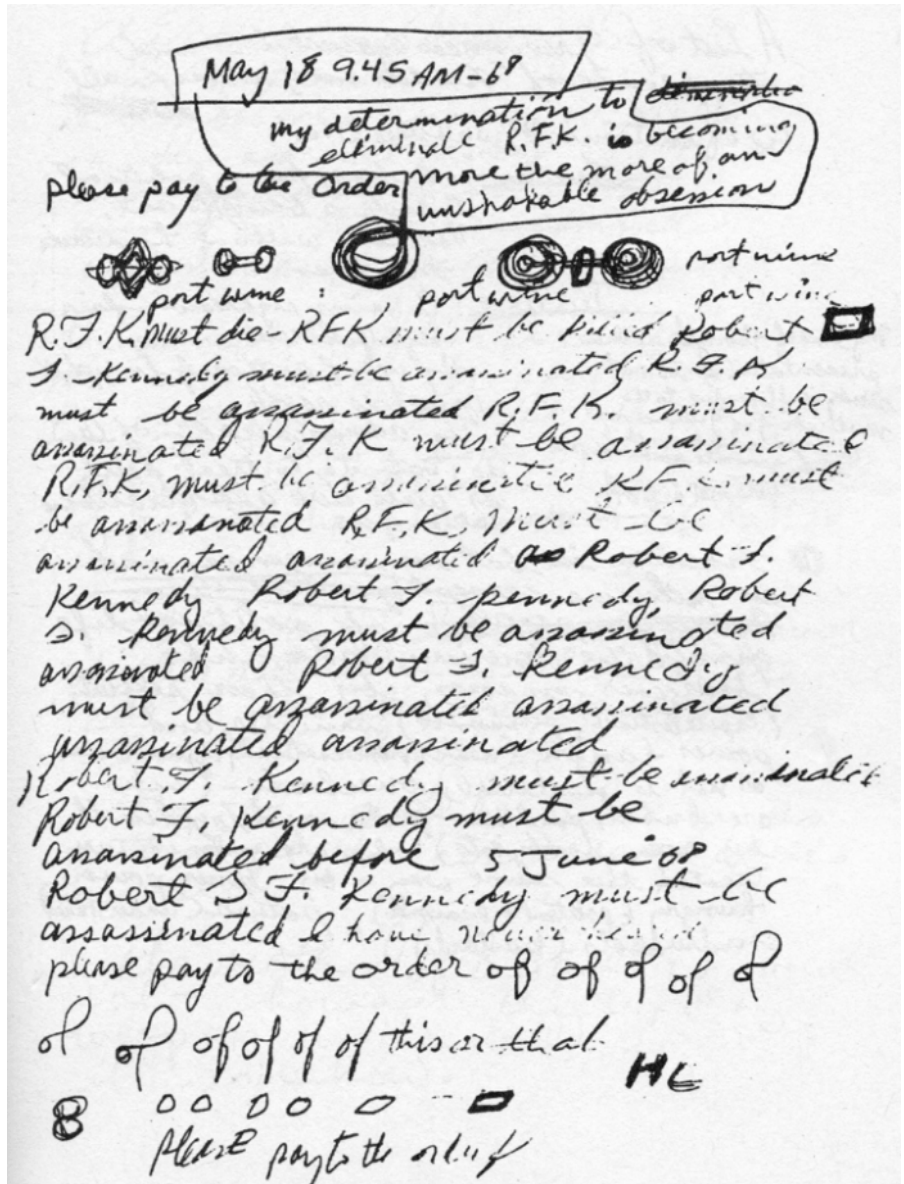 May 18 9.45 AM-68
my determination to
eliminate R.F.K. is becoming
more the more of an
unshakable obsession
please pay to the order
port wine
port wine : port wine port wine
R.F.K. must die - RFK must be killed Robert
F. Kennedy must be assassinated R.F.K
must be assassinated R.F.K. must be
assassinated R.F.K must be assassinated
R.F.K, must be assassinated R.F.K. must
be assassinated R.F.K, must be
assassinated assassinated Robert F.
Kennedy Robert F. Kennedy, Robert
F. Kennedy must be assassinated
assassinated Robert F. Kennedy
must be assassinated assassinated
assassinated assassinated
Robert F. Kennedy must be assassinated
Robert F. Kennedy must be
assassinated before 5 June 68
Robert F. Kennedy must be
assassinated I have never heard
please pay to the order of of of of of
of of of of of of this or that
HL
8 0 0 0 0 0
please pay to the order of